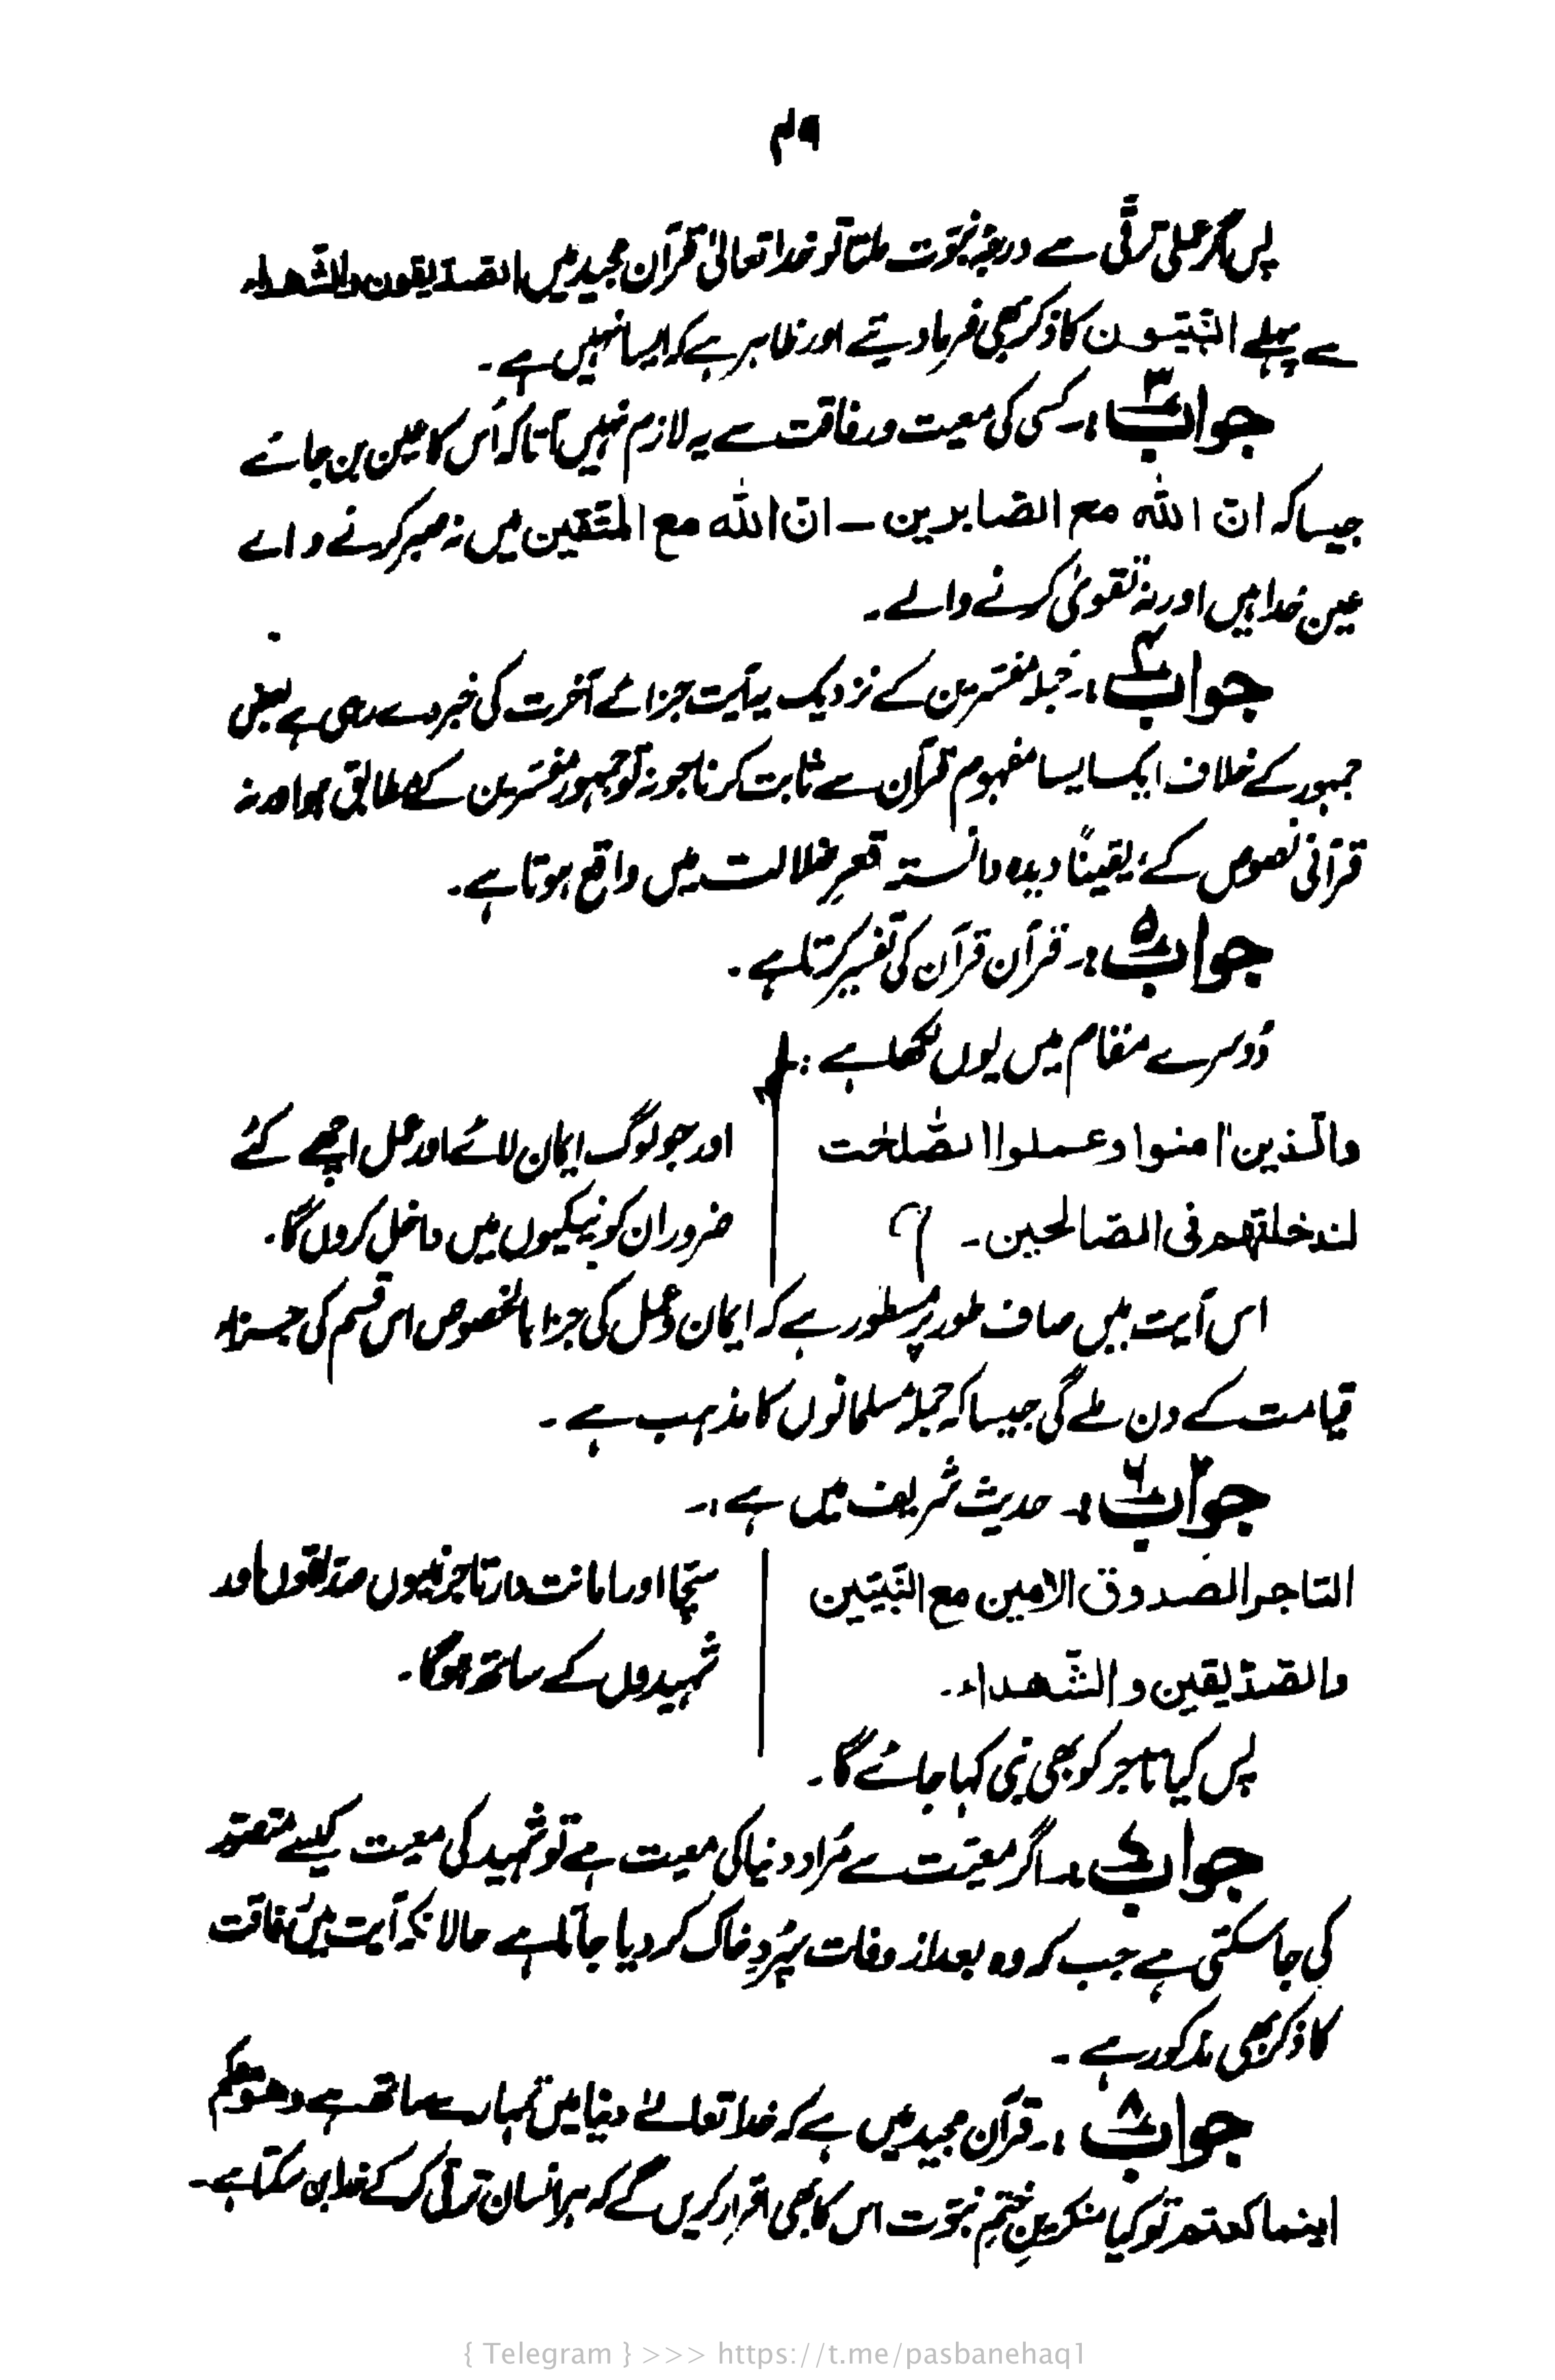 ۴۹
پس اگر عملی ترقی سے درجۂ نبوت ملتا تو خدا تعالیٰ قرآن مجید میں الصدیقون والشھداء
سے پہلے النّبیّون کا ذکر بھی فرما دیتے اور ظاہر ہے کہ ایسا نہیں ہے۔
جواب ۳:۔ کسی کی معیت و رفاقت سے یہ لازم نہیں آتا کہ اُس کا عین بن جائے
جیسا کہ انّ اللّٰہ مع الصّابرین — انّ اللّٰہ مع المتّقین میں نہ صبر کرنے والے
عین خدا ہیں اور نہ تقویٰ کرنے والے۔
جواب ۴:۔ جملہ مفسّرین کے نزدیک یہ آیت جزائے آخرت کی خبر دے رہی ہے یعنی
جمہور کے خلاف ایک ایسا مفہوم قرآن سے ثابت کرنا جو نہ تو جمہور مفسّرین کے مطابق ہو اور نہ
قرآنی نصوص کے، یقیناً دیدہ دانستہ قعرِ ضلالت میں واقع ہوتا ہے۔
جواب ۵:۔ قرآن قرآن کی تفسیر کرتا ہے۔
دُوسرے مقام میں یوں لکھا ہے:۔
والّذین اٰمنوا وعملوا الصّٰلحٰت
لندخلنّھم فی الصّالحین۔
اور جو لوگ ایمان لائے اور عمل اچھے کئے
ضرور ان کو نیکیوں میں داخل کروں گا۔
اس آیت میں صاف طور پر مسطور ہے کہ ایمان و عمل کی جزا بالخصوص اس قسم کی جزاء
قیامت کے دن ملے گی جیسا کہ جملہ مسلمانوں کا مذہب ہے۔
جواب ۶:۔ حدیث شریف میں ہے:۔
التاجر الصدوق الامین مع النّبیّین
والصّدّیقین والشّھداء۔
سچّا اور امانت دار تاجر نبیوں صدّیقوں اور
شہیدوں کے ساتھ ہوگا۔
پس کیا تاجر کو بھی نبی کہا جائے گا۔
جواب ۷:۔ اگر معیّت سے مُراد دنیا کی معیت ہے تو شہید کی معیت کیسے متصوّر
کی جا سکتی ہے جب کہ وہ بعد از وفات سپُردِ خاک کر دیا جاتا ہے حالانکہ آیت میں رفاقت
کا ذکر بھی مذکور ہے۔
جواب ۸:۔ قرآن مجید میں ہے کہ خدا تعالےٰ دنیا میں تمہارے ساتھ ہے وھو معکم
اینما کنتم تو کیا منکرینِ ختمِ نبوّت اس کا بھی اقرار کریں گے کہ ہر انسان ترقی کر کے خدا بن سکتا ہے۔
{ Telegram } >>> https://t.me/pasbanehaq1